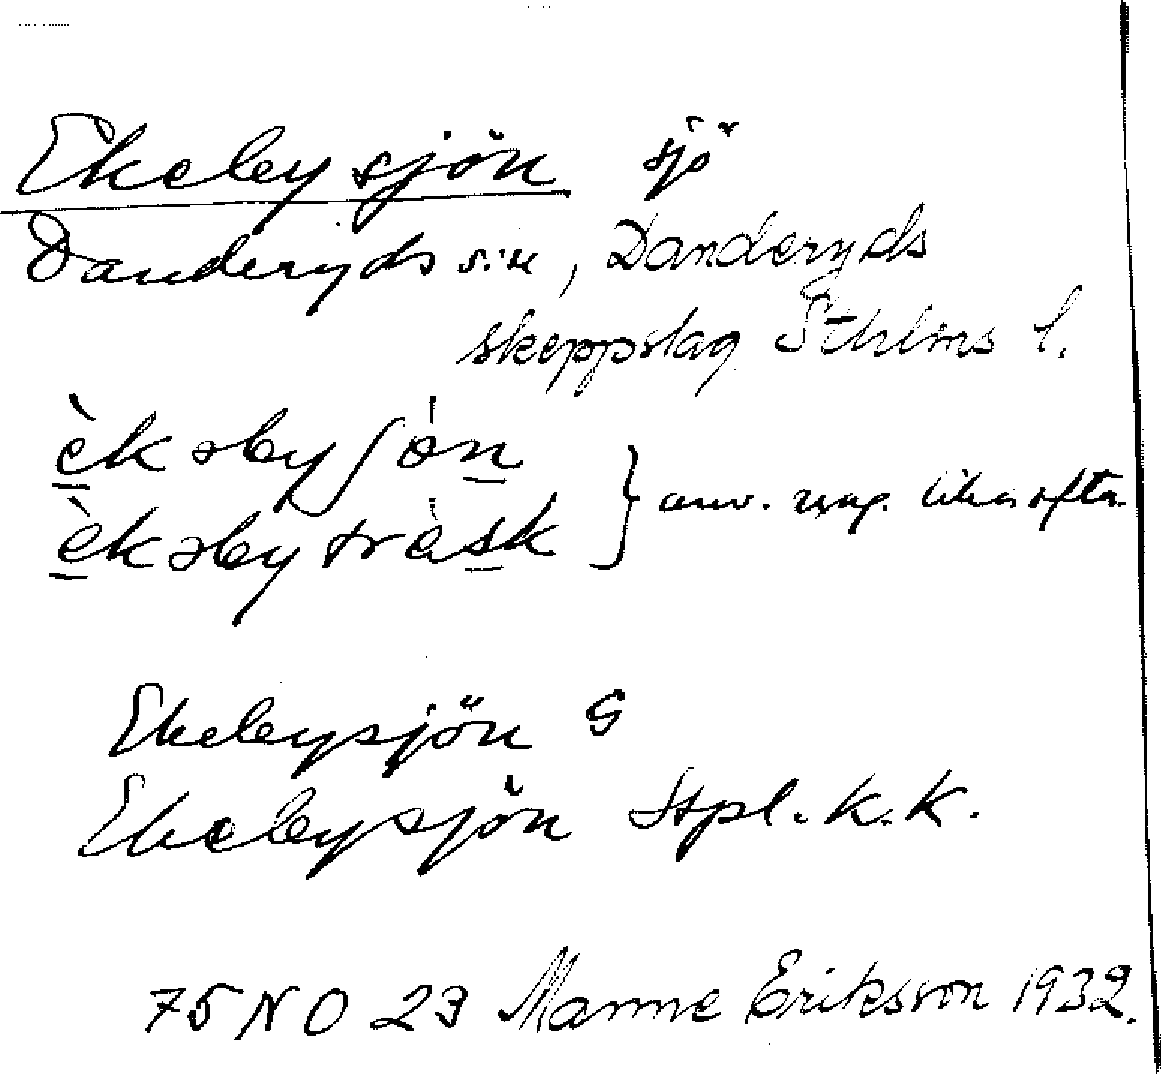 Ekeby sjön sjö
Danderyds sn, Danderyds
skeppslag Sthlms l.
èkəbyʃön
èkəbyträsk } anv. ung. lika ofta
Ekebysjön G
Ekebysjön Stpl. k.k.
75 NO 23 Manne Eriksson 1932.